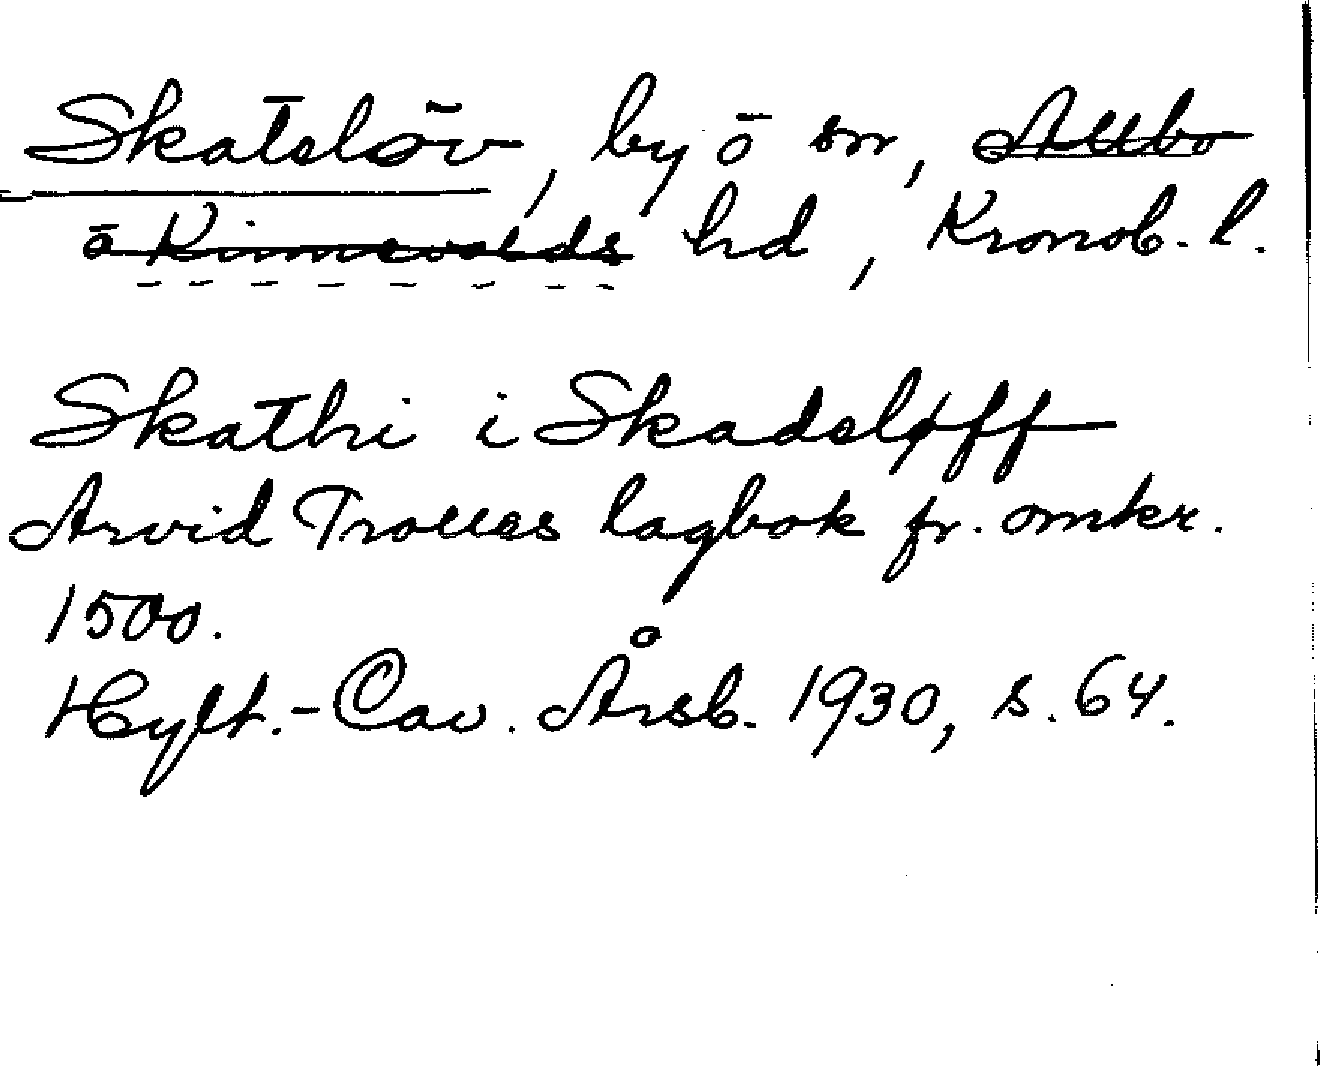 Skatelöv, by o sn, Allbo
o Kinnevalds hd, Kronob. l.
Skathi i Skadeløff
Arvid Trolles lagbok fr. omkr.
1500.
Hylt.-Cav. Årsb. 1930, s. 64.